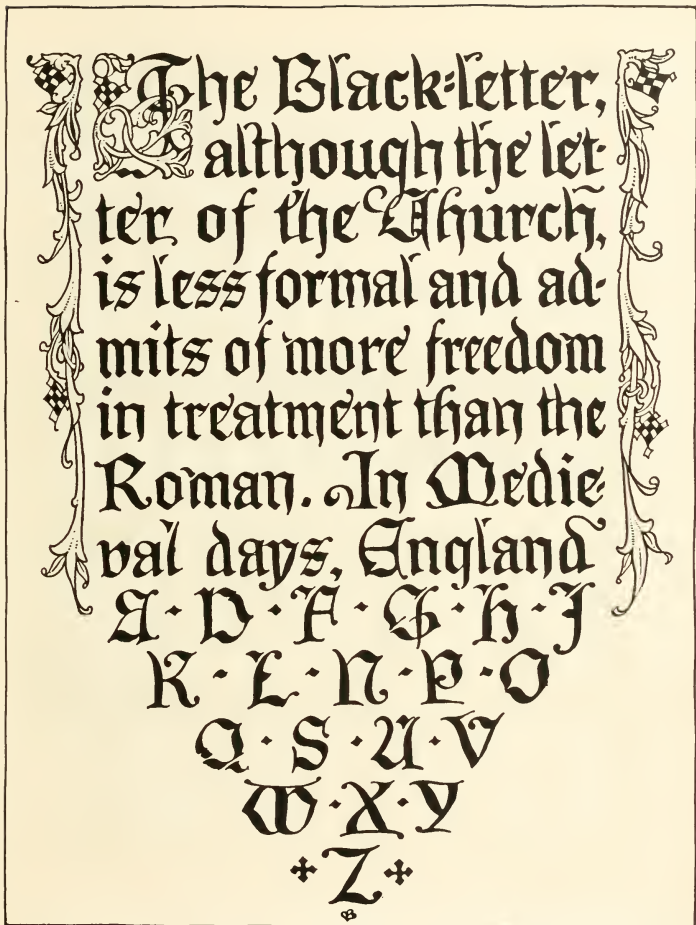 The Black-letter,
although the let-
ter of the Church,
is less formal and ad-
mits of more freedom
in treatment than the
Roman. In Medie-
val days, England
A · D · F · G · H · J
K · L · N · P · O
Q · S · U · V
W · X · Y
Z
B